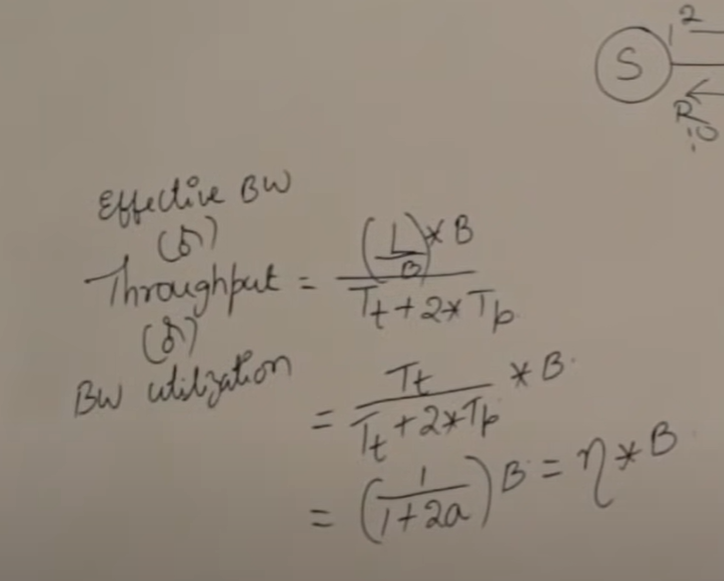 2
S
R
Effective BW
(or)
Throughput = (L/B) * B / Tt + 2 * Tp
(or)
BW utilization
= Tt / Tt + 2 * Tp * B
= (1 / 1 + 2a) B = η * B